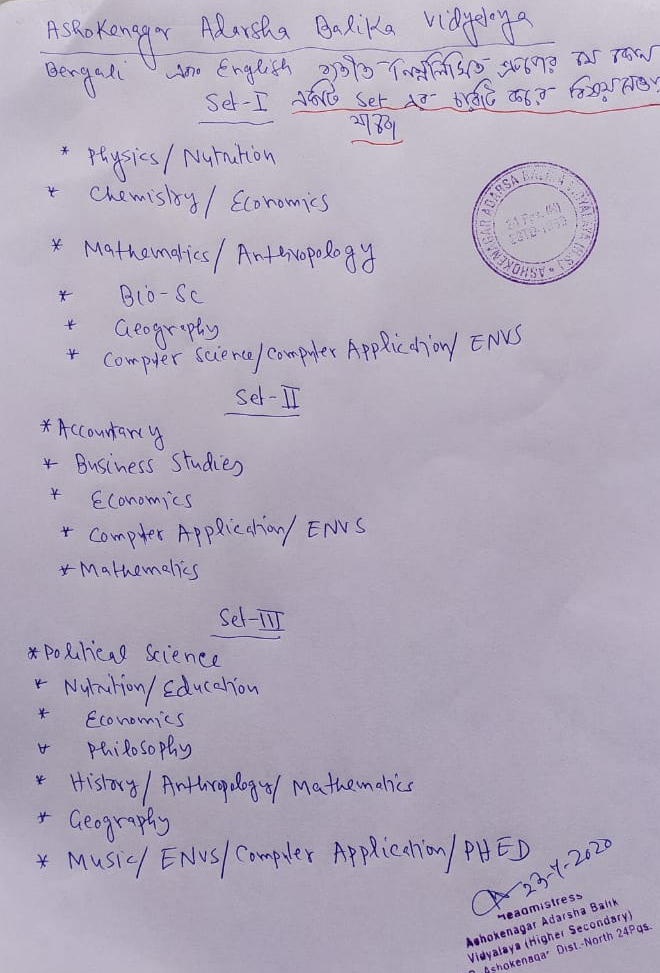 Ashokenagar Adarsha Balika Vidyalaya
Bengali এবং English ব্যতীত নিম্নলিখিত গ্রুপের যে কোন
একটি Set এর চারটি করে বিষয় নেওয়া
যাবে
Set-I
* Physics/ Nutrition
* Chemistry/ Economics
* Mathematics/ Anthropology
* Bio-Sc
* Geography
* Computer Science/Computer Application/ ENVS
Set-II
* Accountancy
* Business Studies
* Economics
* Computer Application/ ENVS
* Mathematics
Set-III
* Political Science
* Nutrition/ Education
* Economics
* Philosophy
* History/ Anthropology/ Mathematics
* Geography
* Music/ ENVS/ Computer Application/ PHED
23-7-2020
Headmistress
Ashokenagar Adarsha Balik
Vidyalaya (Higher Secondary)
Ashokenagar Dist.-North 24Pgs.